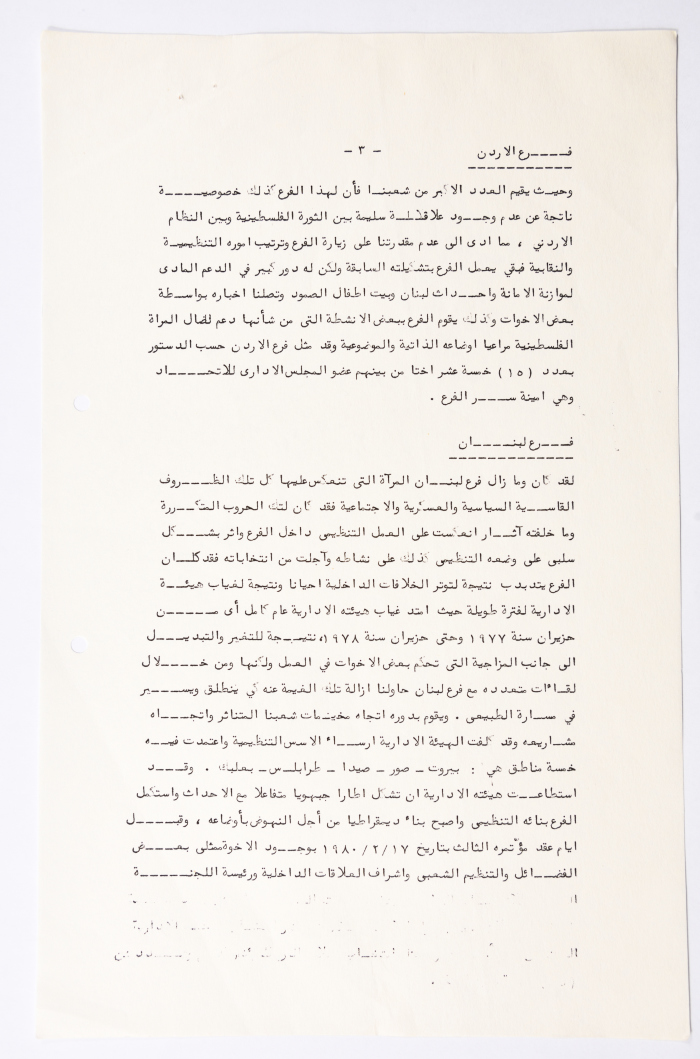 فــــرع الاردن
- ٣ -
وحيـث يقيم العدد الاكبر من شعبنـا فأن لهذا الفرع كذلك خصوصيــــة
ناتجة عن عدم وجـود علاقـــة سليمة بين الثورة الفلسطينية وبين النظام
الاردني ، مما ادى الى عدم مقدرتنا على زيارة الفرع وترتيب اموره التنظيميـة
والنقابية فبقي يعمل الفرع بتشكيلته السابقة ولكن له دور كبير في الدعم المادى
لموازنة الامانة واحـداث لبنان وبيت اطفال الصمود وتصلنا اخباره بواسـطة
بعض الاخوات وكذلك يقوم الفرع ببعض الانشطة التى من شأنها دعم نضال المراة
الفلسطينية مراعيا اوضاعه الذاتية والموضوعية وقد مثل فرع الاردن حسب الدستور
بعدد (١٥) خمسة عشر اختا من بينهم عضو المجلس الادارى للاتحــــاد
وهي امينة ســـر الفرع .
فــــرع لبنــــان
لقد كان وما زال فرع لبنــان المرآة التى تنعكس عليها كل تلك الظـــروف
القاسـية السياسية والعسكرية والاجتماعية فقد كان لتلك الحروب المتكـــررة
وما خلفته آثــار انعكست على العمل التنظيمى داخل الفرع واثر بشـــكل
سلبى على وضعه التنظيمى كذلك على نشاطه وآجلت من انتخاباته فقد كــان
الفرع يتذبذب نتيجة لتوتر الخلافات الداخلية احيانا ونتيجة لغياب هيئــة
الادارية لفترة طويلة حيث امتد غياب هيئته الادارية عام كامل أى مــــن
حزيران سنة ١٩٧٧ وحتى حزيران سنة ١٩٧٨، نتيـجة للتغير والتبديـــل
الى جانب المزاجية التى تحكم بعض الاخوات في العمل ولكنها ومن خـــلال
لقاءات متعدده مع فرع لبنان حاولنا ازالة تلك الغيمة عنه كي ينطلق ويســير
في مسـارة الطبيعى . ويقوم بدوره اتجاه مخيمات شعبنا المتناثر واتجــاه
مشـاريعه وقد كلفت الهيئة الادارية ارســاء الاسس التنظيمية واعتمدت فيــه
خمسة مناطق هي : بيروت - صور - صيدا - طرابلس - بعلبك . وقــد
استطاعــت هيئته الادارية ان تشكل اطارا جبهويا متفاعلا مع الاحداث واستكمل
الفرع بنائه التنظيمى واصبح بناء ديمقراطيا من أجل النهوض بأوضاعه ، وقبــل
ايام عقد مؤتمره الثالث بتاريخ ١٩٨٠/٢/١٧ بوجــود الاخوة ممثلى بعــض
الفصـائل والتنظيم الشعبى واشراف العلاقات الداخلية ورئيسة اللجنــــة
الادارية